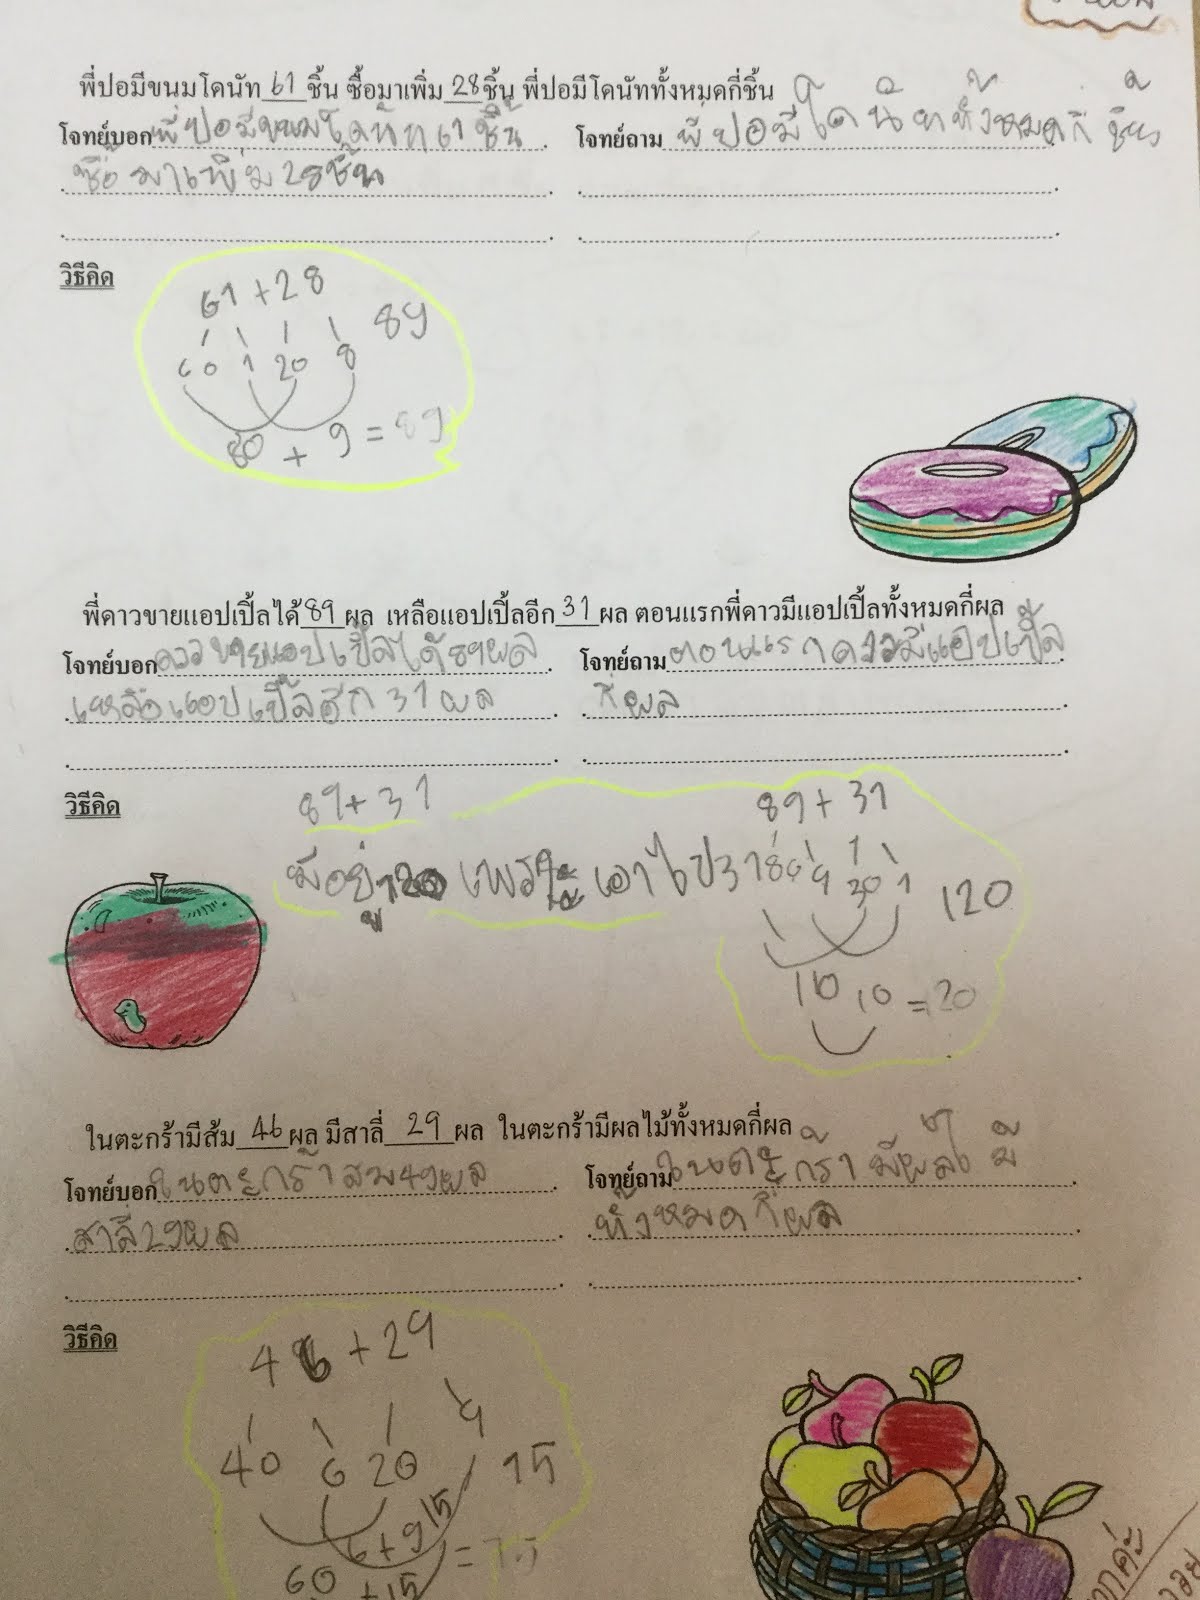 พี่ปอมีขนมโดนัท 61 ชิ้น ซื้อมาเพิ่ม 28 ชิ้น พี่ปอมีโดนัททั้งหมดกี่ชิ้น
โจทย์บอก พี่ปอมีขนมโดนัท 61 ชิ้น
ซื้อมาเพิ่ม 28 ชิ้น
โจทย์ถาม พี่ปอมีโดนัททั้งหมดกี่ชิ้น
วิธีคิด
61 + 28
60 1 20 8 89
80 + 9 = 89
พี่ดาวขายแอปเปิ้ลได้ 89 ผล เหลือแอปเปิ้ลอีก 31 ผล ตอนแรกพี่ดาวมีแอปเปิ้ลทั้งหมดกี่ผล
โจทย์บอก ดาวขายแอปเปิ้ลได้ 89 ผล
เหลือแอปเปิ้ลอีก 31 ผล
โจทย์ถาม ตอนแรกดาวมีแอปเปิ้ล
กี่ผล
วิธีคิด
89 + 31
มีอยู่ 120 เพราะ เอาไป 31
89 + 31
80 9 30 1 120
110 10 = 20
ในตะกร้ามีส้ม 46 ผล มีสาลี่ 29 ผล ในตะกร้ามีผลไม้ทั้งหมดกี่ผล
โจทย์บอก ในตะกร้า
สาลี่ 29 ผล
โจทย์ถาม ในตะกร้า มี
ทั้งหมดกี่ผล
วิธีคิด
46 + 29
40 6 20 9 15
6 + 9 15
60 + 15 = 75